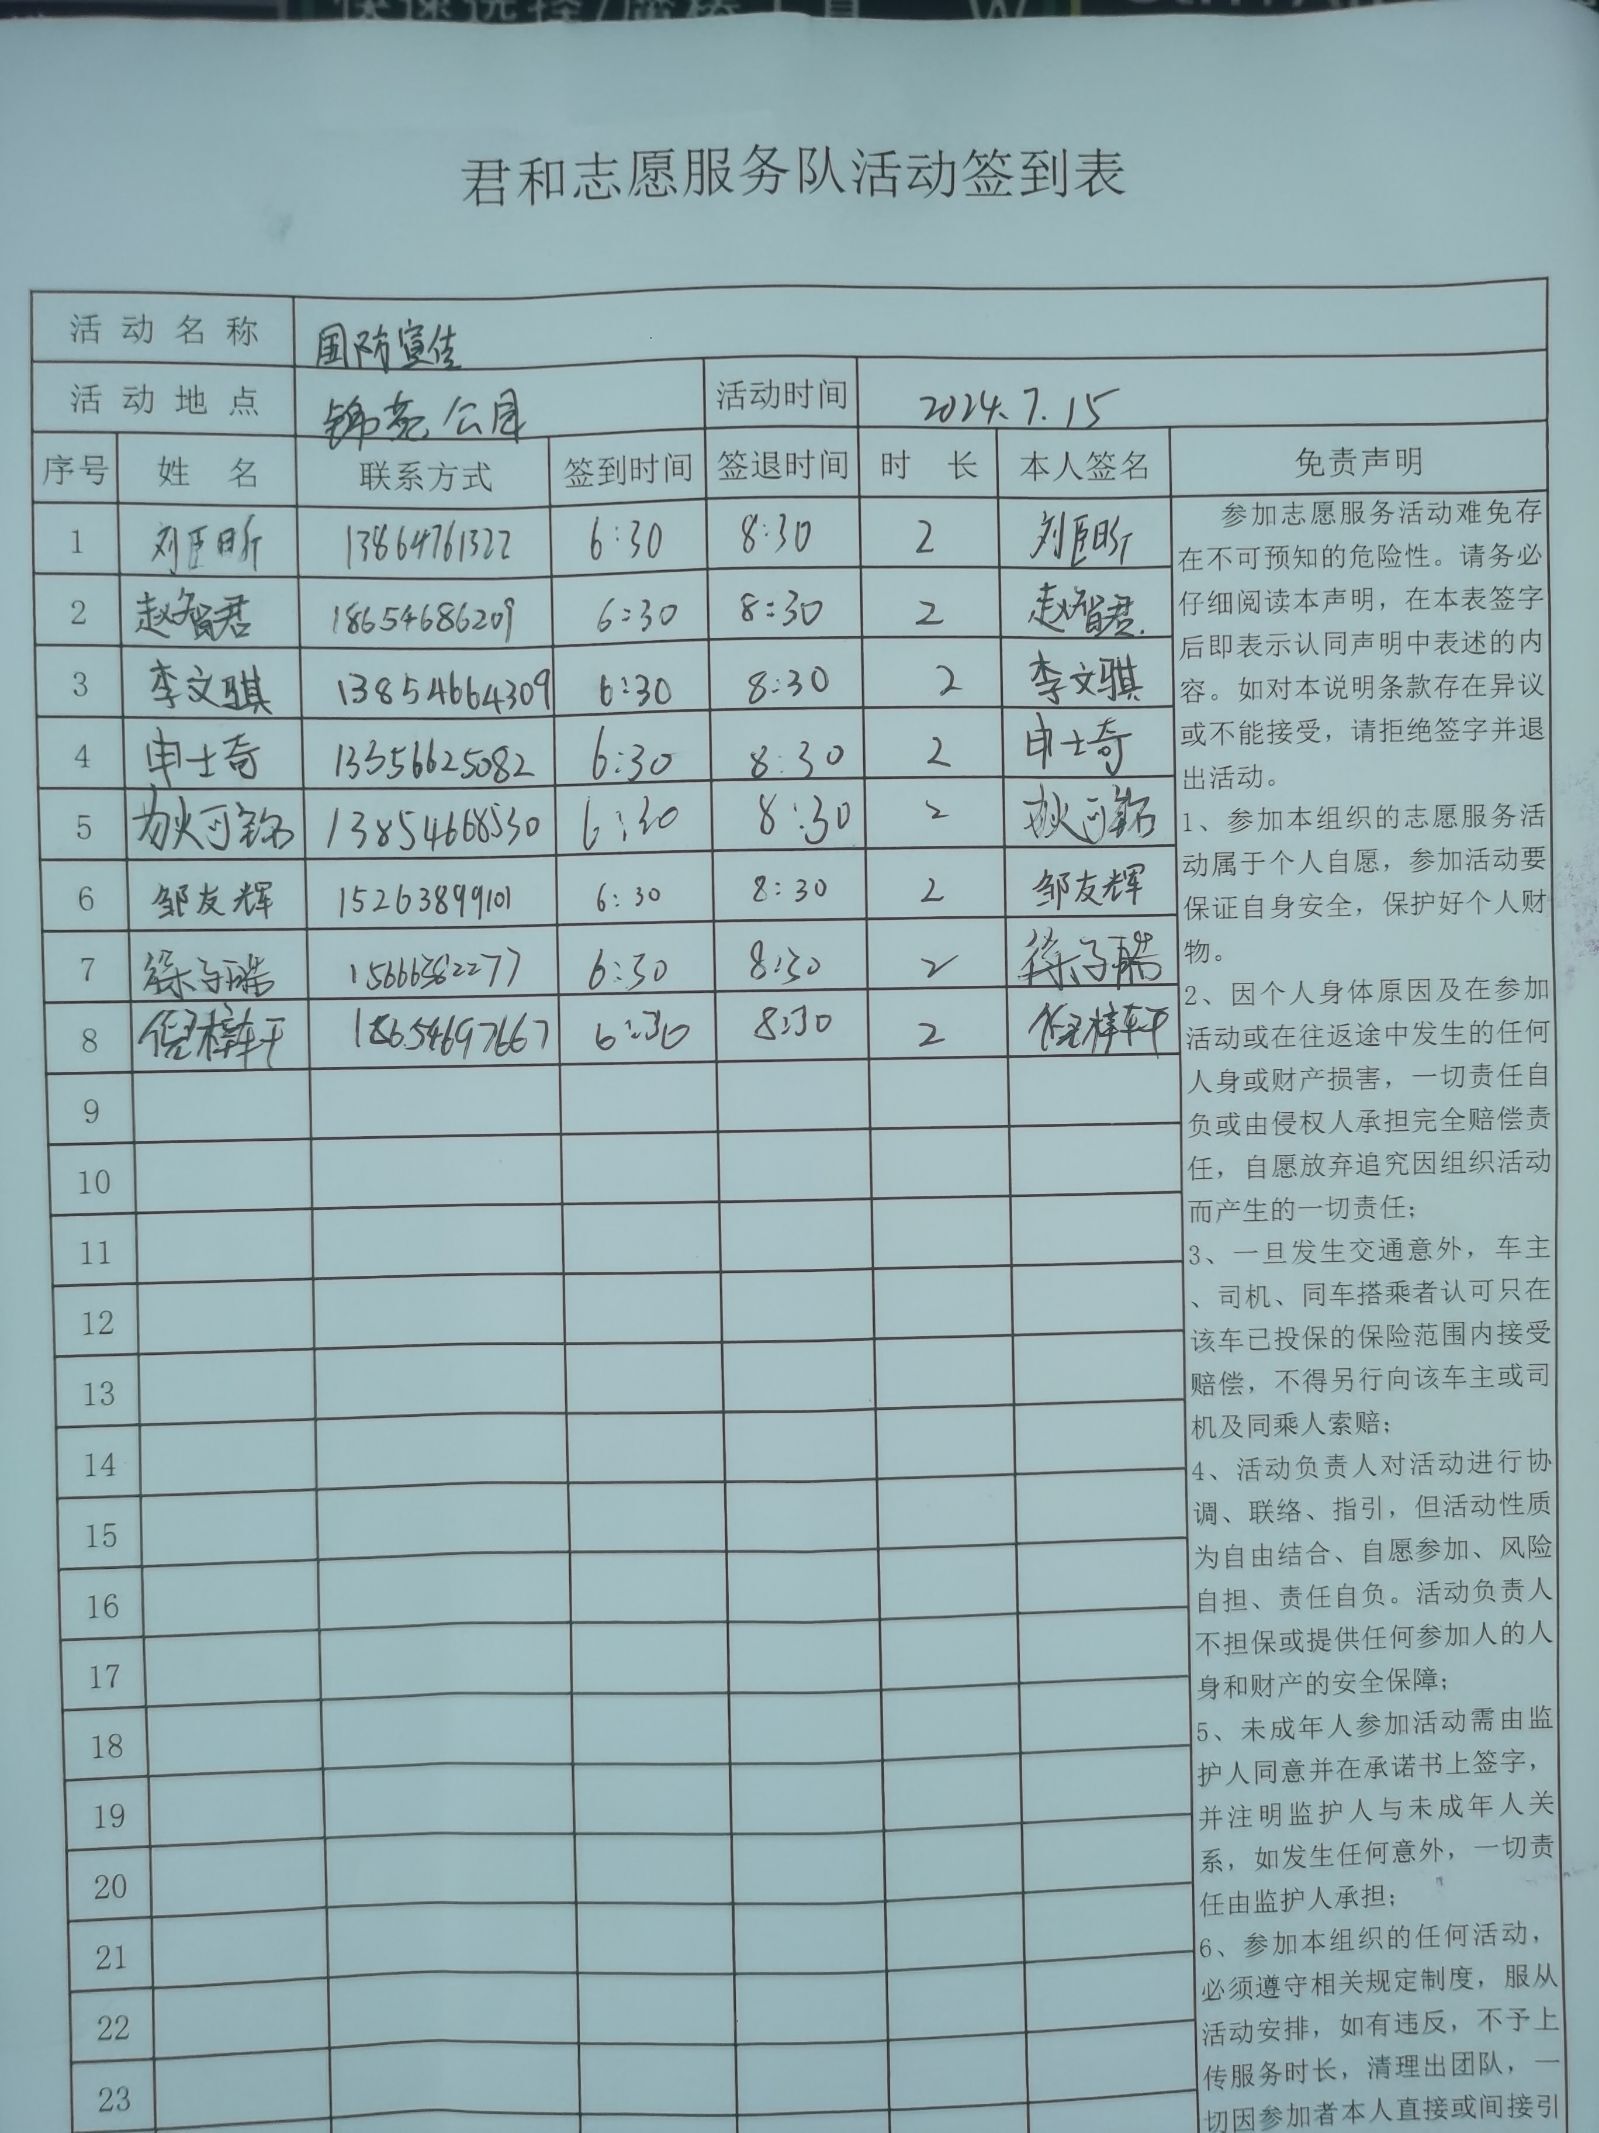 君和志愿服务队活动签到表
活动名称 国防宣传
活动地点 锦苑公园 活动时间 2024.7.15
序号 姓名 联系方式 签到时间 签退时间 时长 本人签名 免责声明
1 刘臣昕 13864761322 6:30 8:30 2 刘臣昕
2 赵智君 18654686209 6:30 8:30 2 赵智君
3 李文骐 13854664309 6:30 8:30 2 李文骐
4 申士奇 13356625082 6:30 8:30 2 申士奇
5 13854668530 6:30 8:30 2
6 邹友辉 15263899101 6:30 8:30 2 邹友辉
7 徐子皓 6:30 8:30 2 徐子皓
8 倪梓轩 18654697667 6:30 8:30 2 倪梓轩
9
10
11
12
13
14
15
16
17
18
19
20
21
22
23
参加志愿服务活动难免存
在不可预知的危险性。请务必
仔细阅读本声明，在本表签字
后即表示认同声明中表述的内
容。如对本说明条款存在异议
或不能接受，请拒绝签字并退
出活动。
1、参加本组织的志愿服务活
动属于个人自愿，参加活动要
保证自身安全，保护好个人财
物。
2、因个人身体原因及在参加
活动或在往返途中发生的任何
人身或财产损害，一切责任自
负或由侵权人承担完全赔偿责
任，自愿放弃追究因组织活动
而产生的一切责任；
3、一旦发生交通意外，车主
、司机、同车搭乘者认可只在
该车已投保的保险范围内接受
赔偿，不得另行向该车主或司
机及同乘人索赔；
4、活动负责人对活动进行协
调、联络、指引，但活动性质
为自由结合、自愿参加、风险
自担、责任自负。活动负责人
不担保或提供任何参加人的人
身和财产的安全保障；
5、未成年人参加活动需由监
护人同意并在承诺书上签字，
并注明监护人与未成年人关
系，如发生任何意外，一切责
任由监护人承担；
6、参加本组织的任何活动，
必须遵守相关规定制度，服从
活动安排，如有违反，不予上
传服务时长，清理出团队，一
切因参加者本人直接或间接引